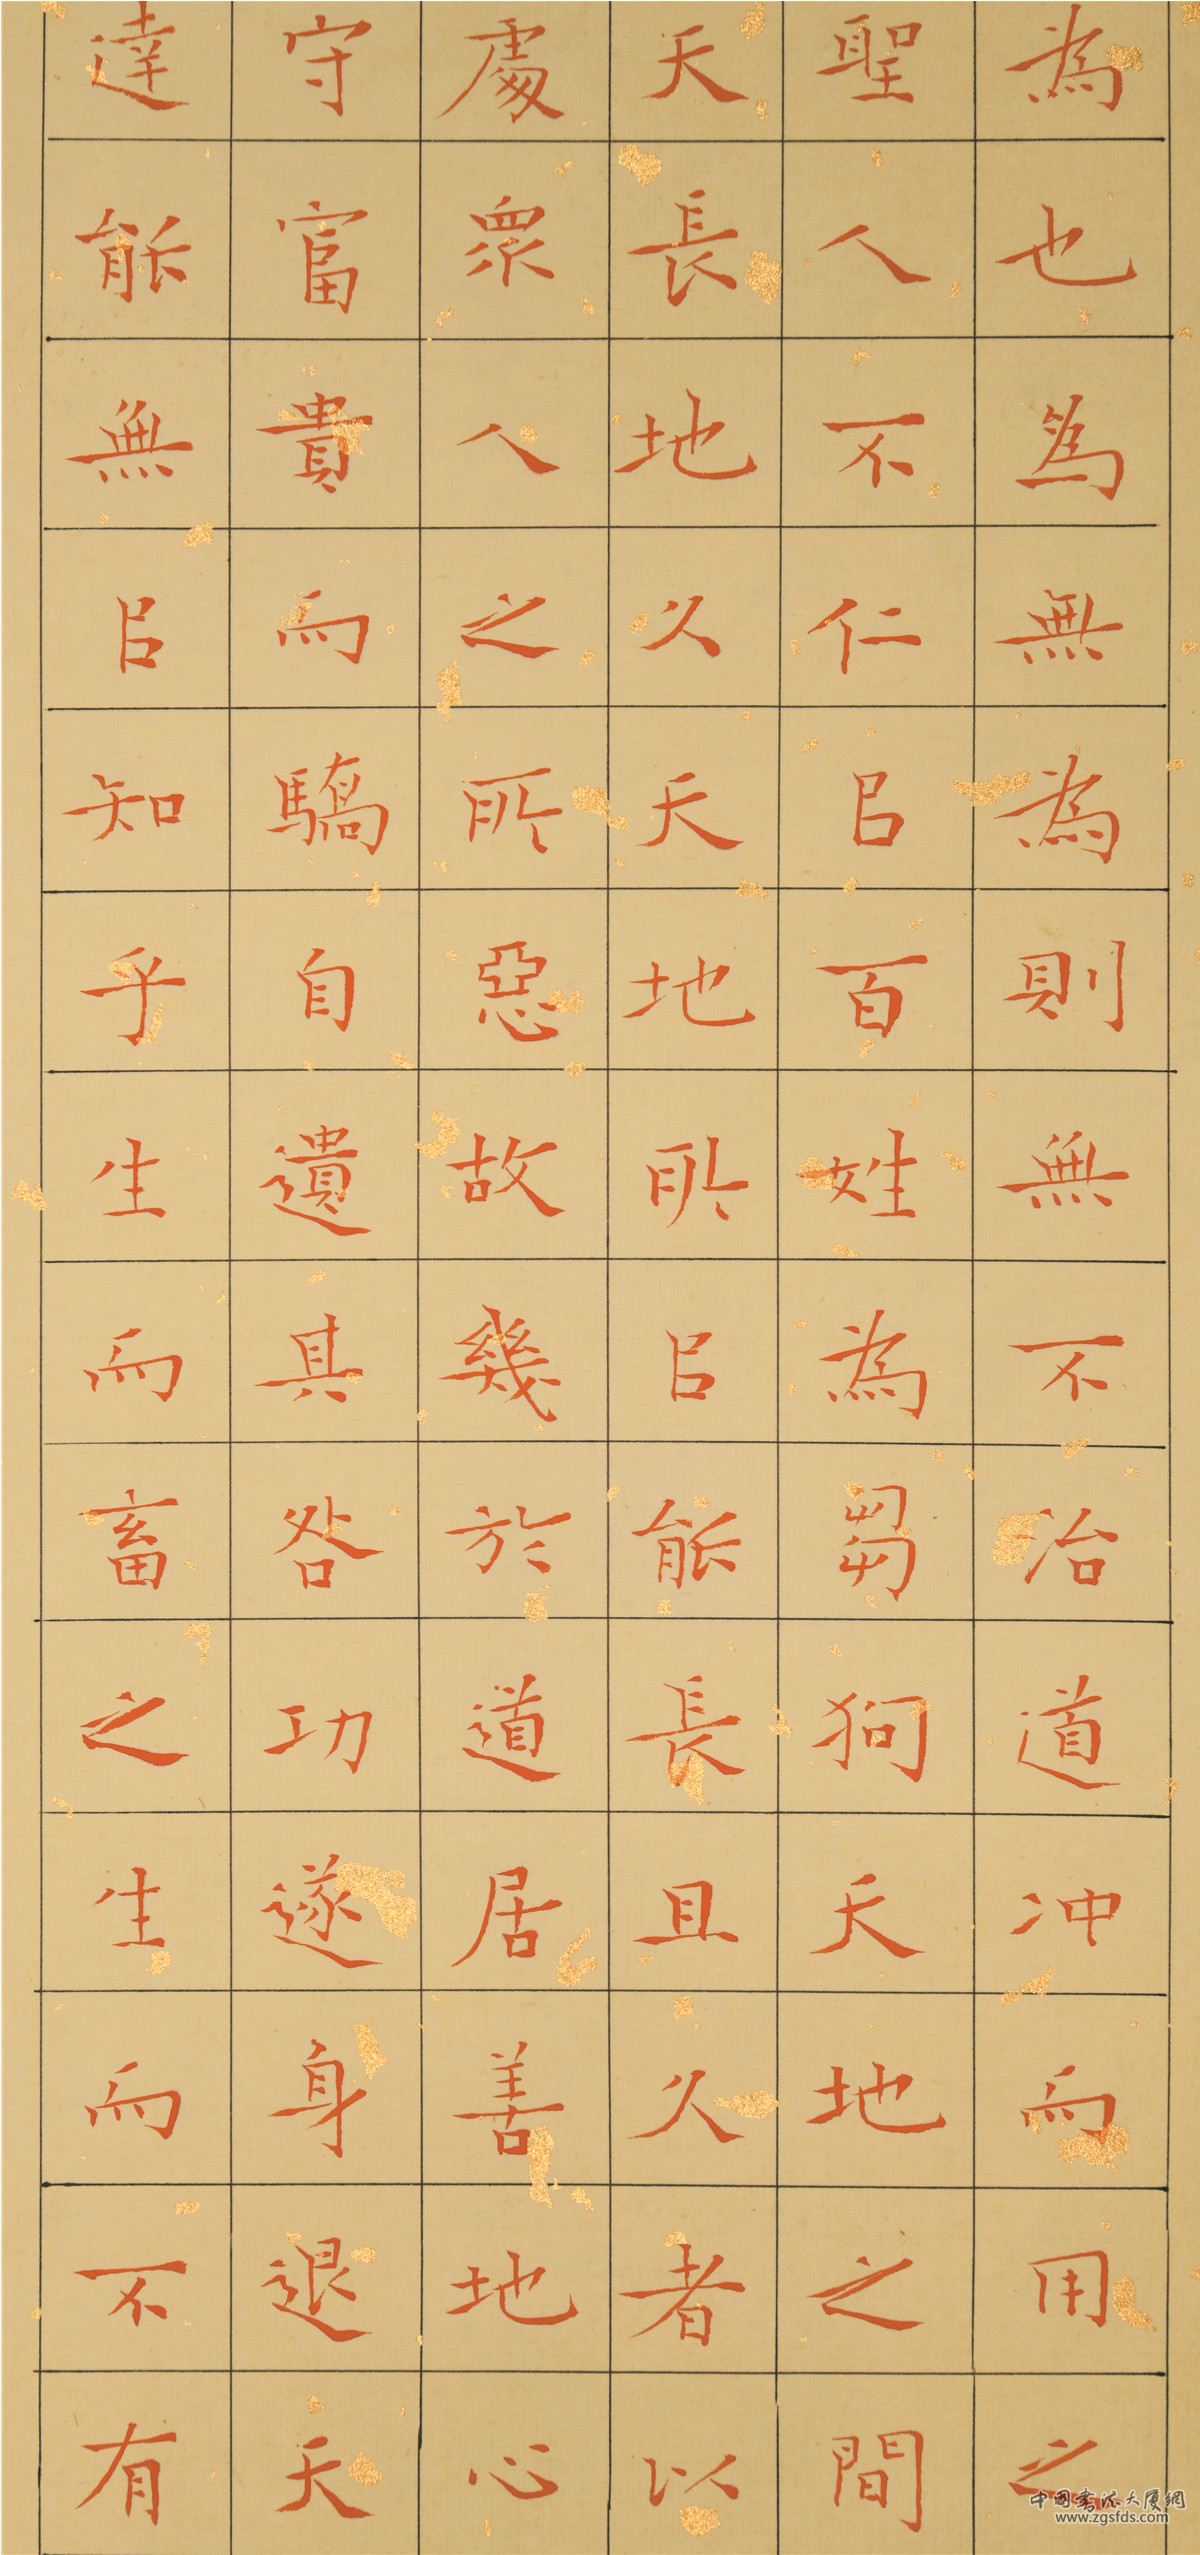 為也為無為則無不治道冲而用之
聖人不仁㠯百姓為芻狗天地之間
天長地久天地所㠯能長且久者以
處眾人之所惡故幾於道居善地心
守富貴而驕自遺其咎功遂身退天
達能無㠯知乎生而畜之生而不有
中國書法大廈網
www.zgsfds.com